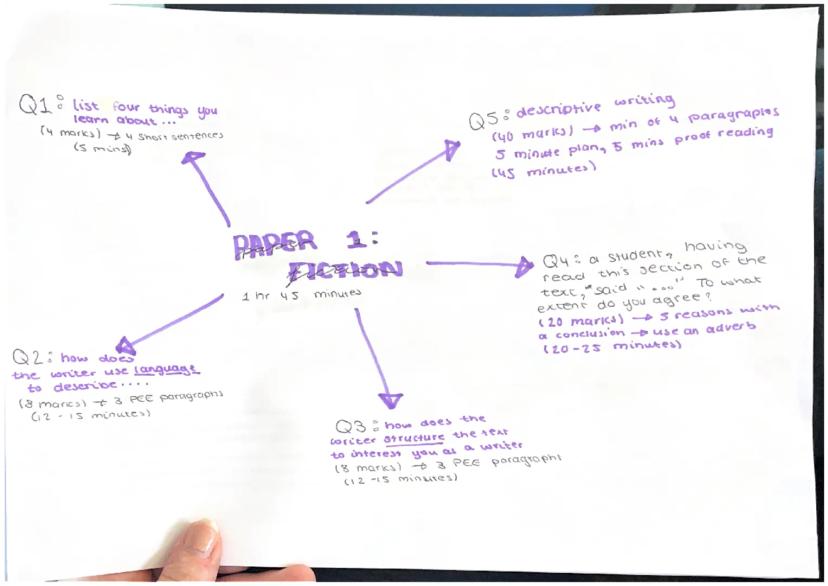 PAPER 1:
FICTION
1 hr 45 minutes
Q1: list four things you
learn about...
(4 marks) → 4 short sentences
(5 mins)
Q5: descriptive writing
(40 marks) → min of 4 paragraphs
5 minute plan, 5 mins proof reading
(45 minutes)
Q4: a student, having
read this section of the
text, "said "...." To what
extent do you agree?
(20 marks) → 3 reasons with
a conclusion → use an adverb
(20-25 minutes)
Q2: how does
the writer use language
to describe....
(8 marks) → 3 PEE paragraphs
(12-15 minutes)
Q3: how does the
writer structure the text
to interest you as a writer
(8 marks) → 3 PEE paragraphs
(12-15 minutes)